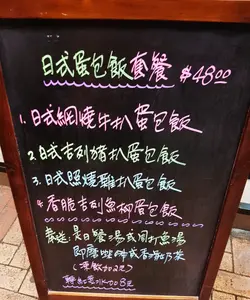 日式蛋包飯套餐 $48.00
1. 日式網燒牛扒蛋包飯
2. 日式吉列豬扒蛋包飯
3. 日式照燒雞扒蛋包飯
4. 香脆吉列魚柳蛋包飯
套送：是日餐湯或周打魚湯
即磨咖啡或香滑奶茶
(凍飲加2元)